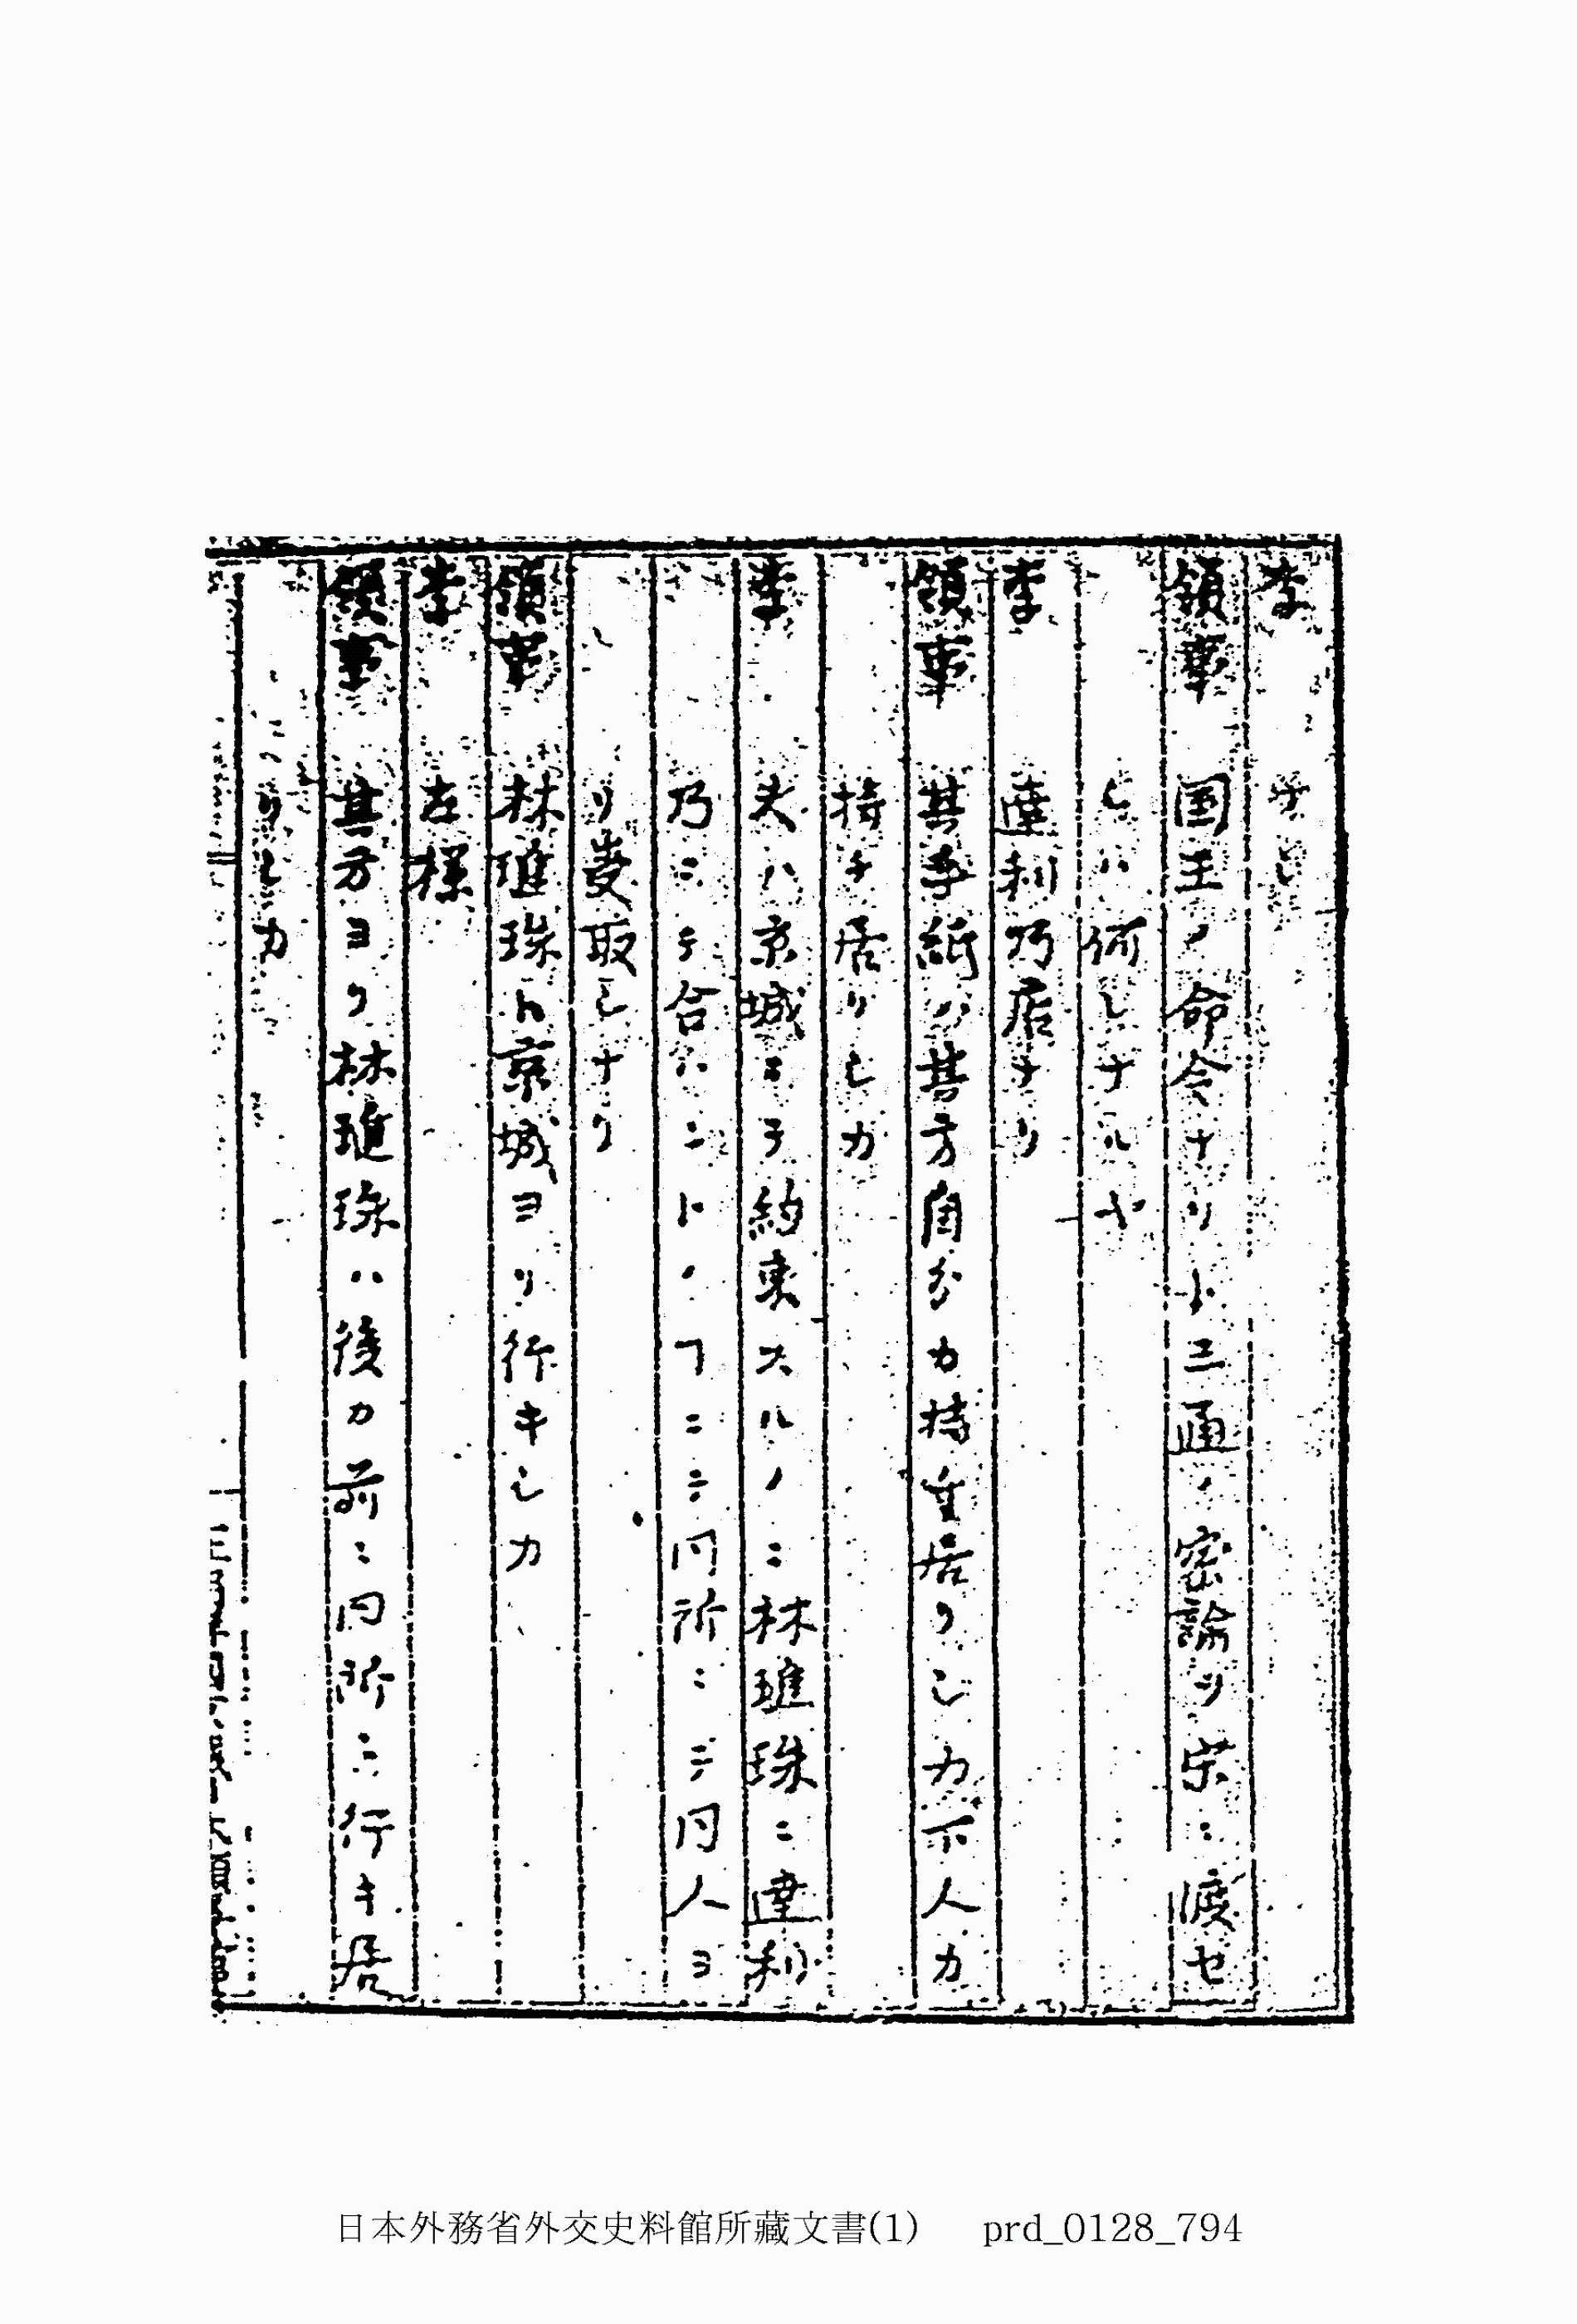 李
領事 国王ノ命令ナリトニ通ノ密諭ヲ宋ニ渡セ
シハ何レナルヤ
李 達利乃店ナリ
領事 其手紙ハ其方自分カ持チ居リシカ
持チ居リシカ
李 夫ハ京城ニテ約束スルノニ林琟珠ニ達利
乃ニテ合ハントノヿニテ同所ニテ同人ヨ
リ受取シナリ
領事 林琟珠ト京城ヨリ行キシカ
李 左様
領事 其方ヨリ林琟珠ハ後カ前ニ同所ニ行キ居
リシカ
日本外務省外交史料館所藏文書(1) prd_0128_794